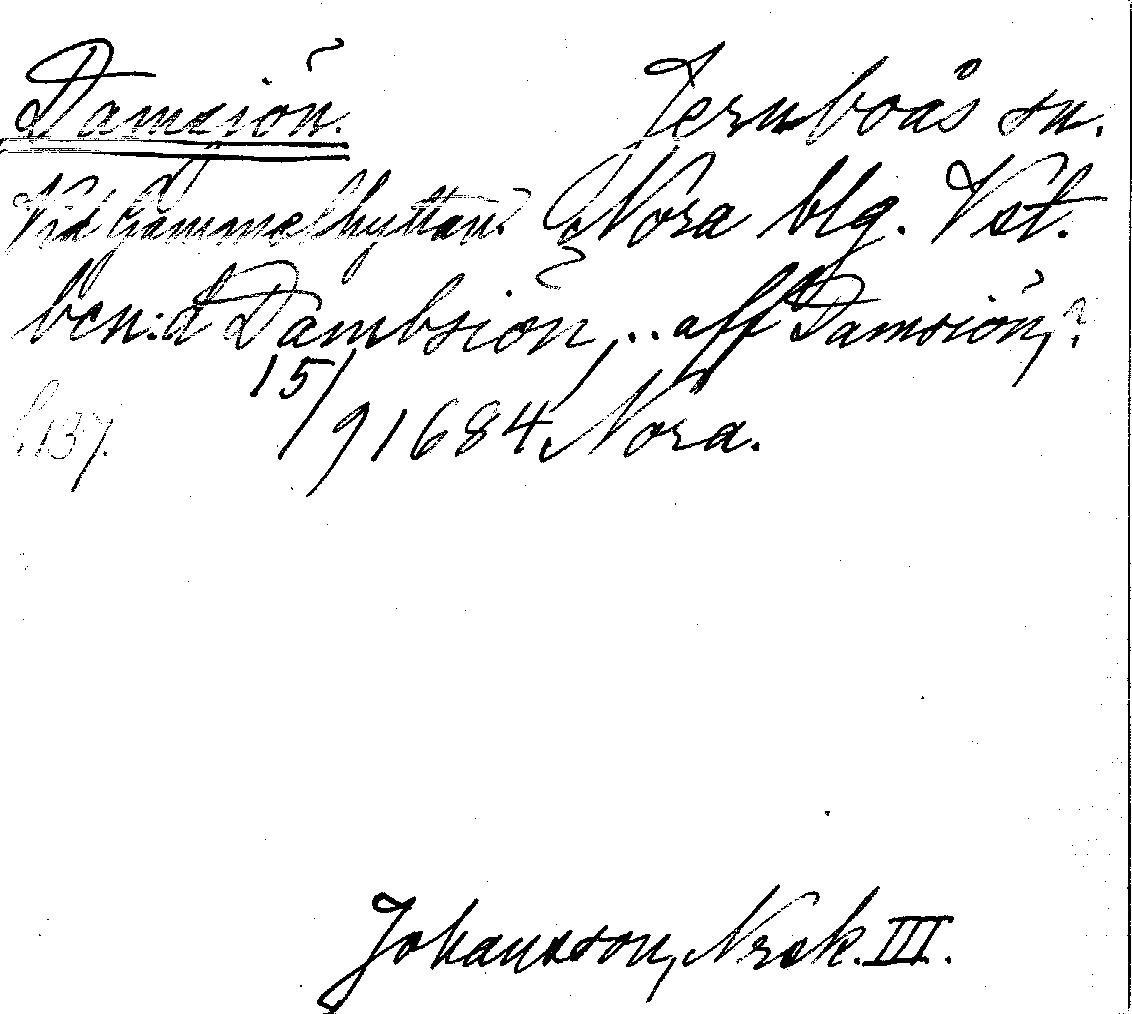 Damsiön. Jernboås sn.
Vid Gammelhyttan. Nora blg. Vst.
ben:d Dambsiön, .. aff Damsiön,?
15/9 1684, Nora.
s. 137.
Johansson, Nrsk. III.